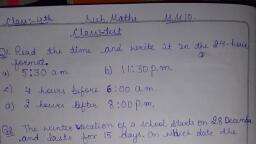 Class:- 4th Sub. Maths M.M 10.
Class-test
Q1 Read the time and write it in the 24-hour
format.
a) 5:30 am b) 11:30 p.m.
c) 4 hours before 6:00 am
d) 2 hours after 8:00 p.m.
Q2 The winter vacation of a school starts on 28 December
and lasts for 15 days. On which date the